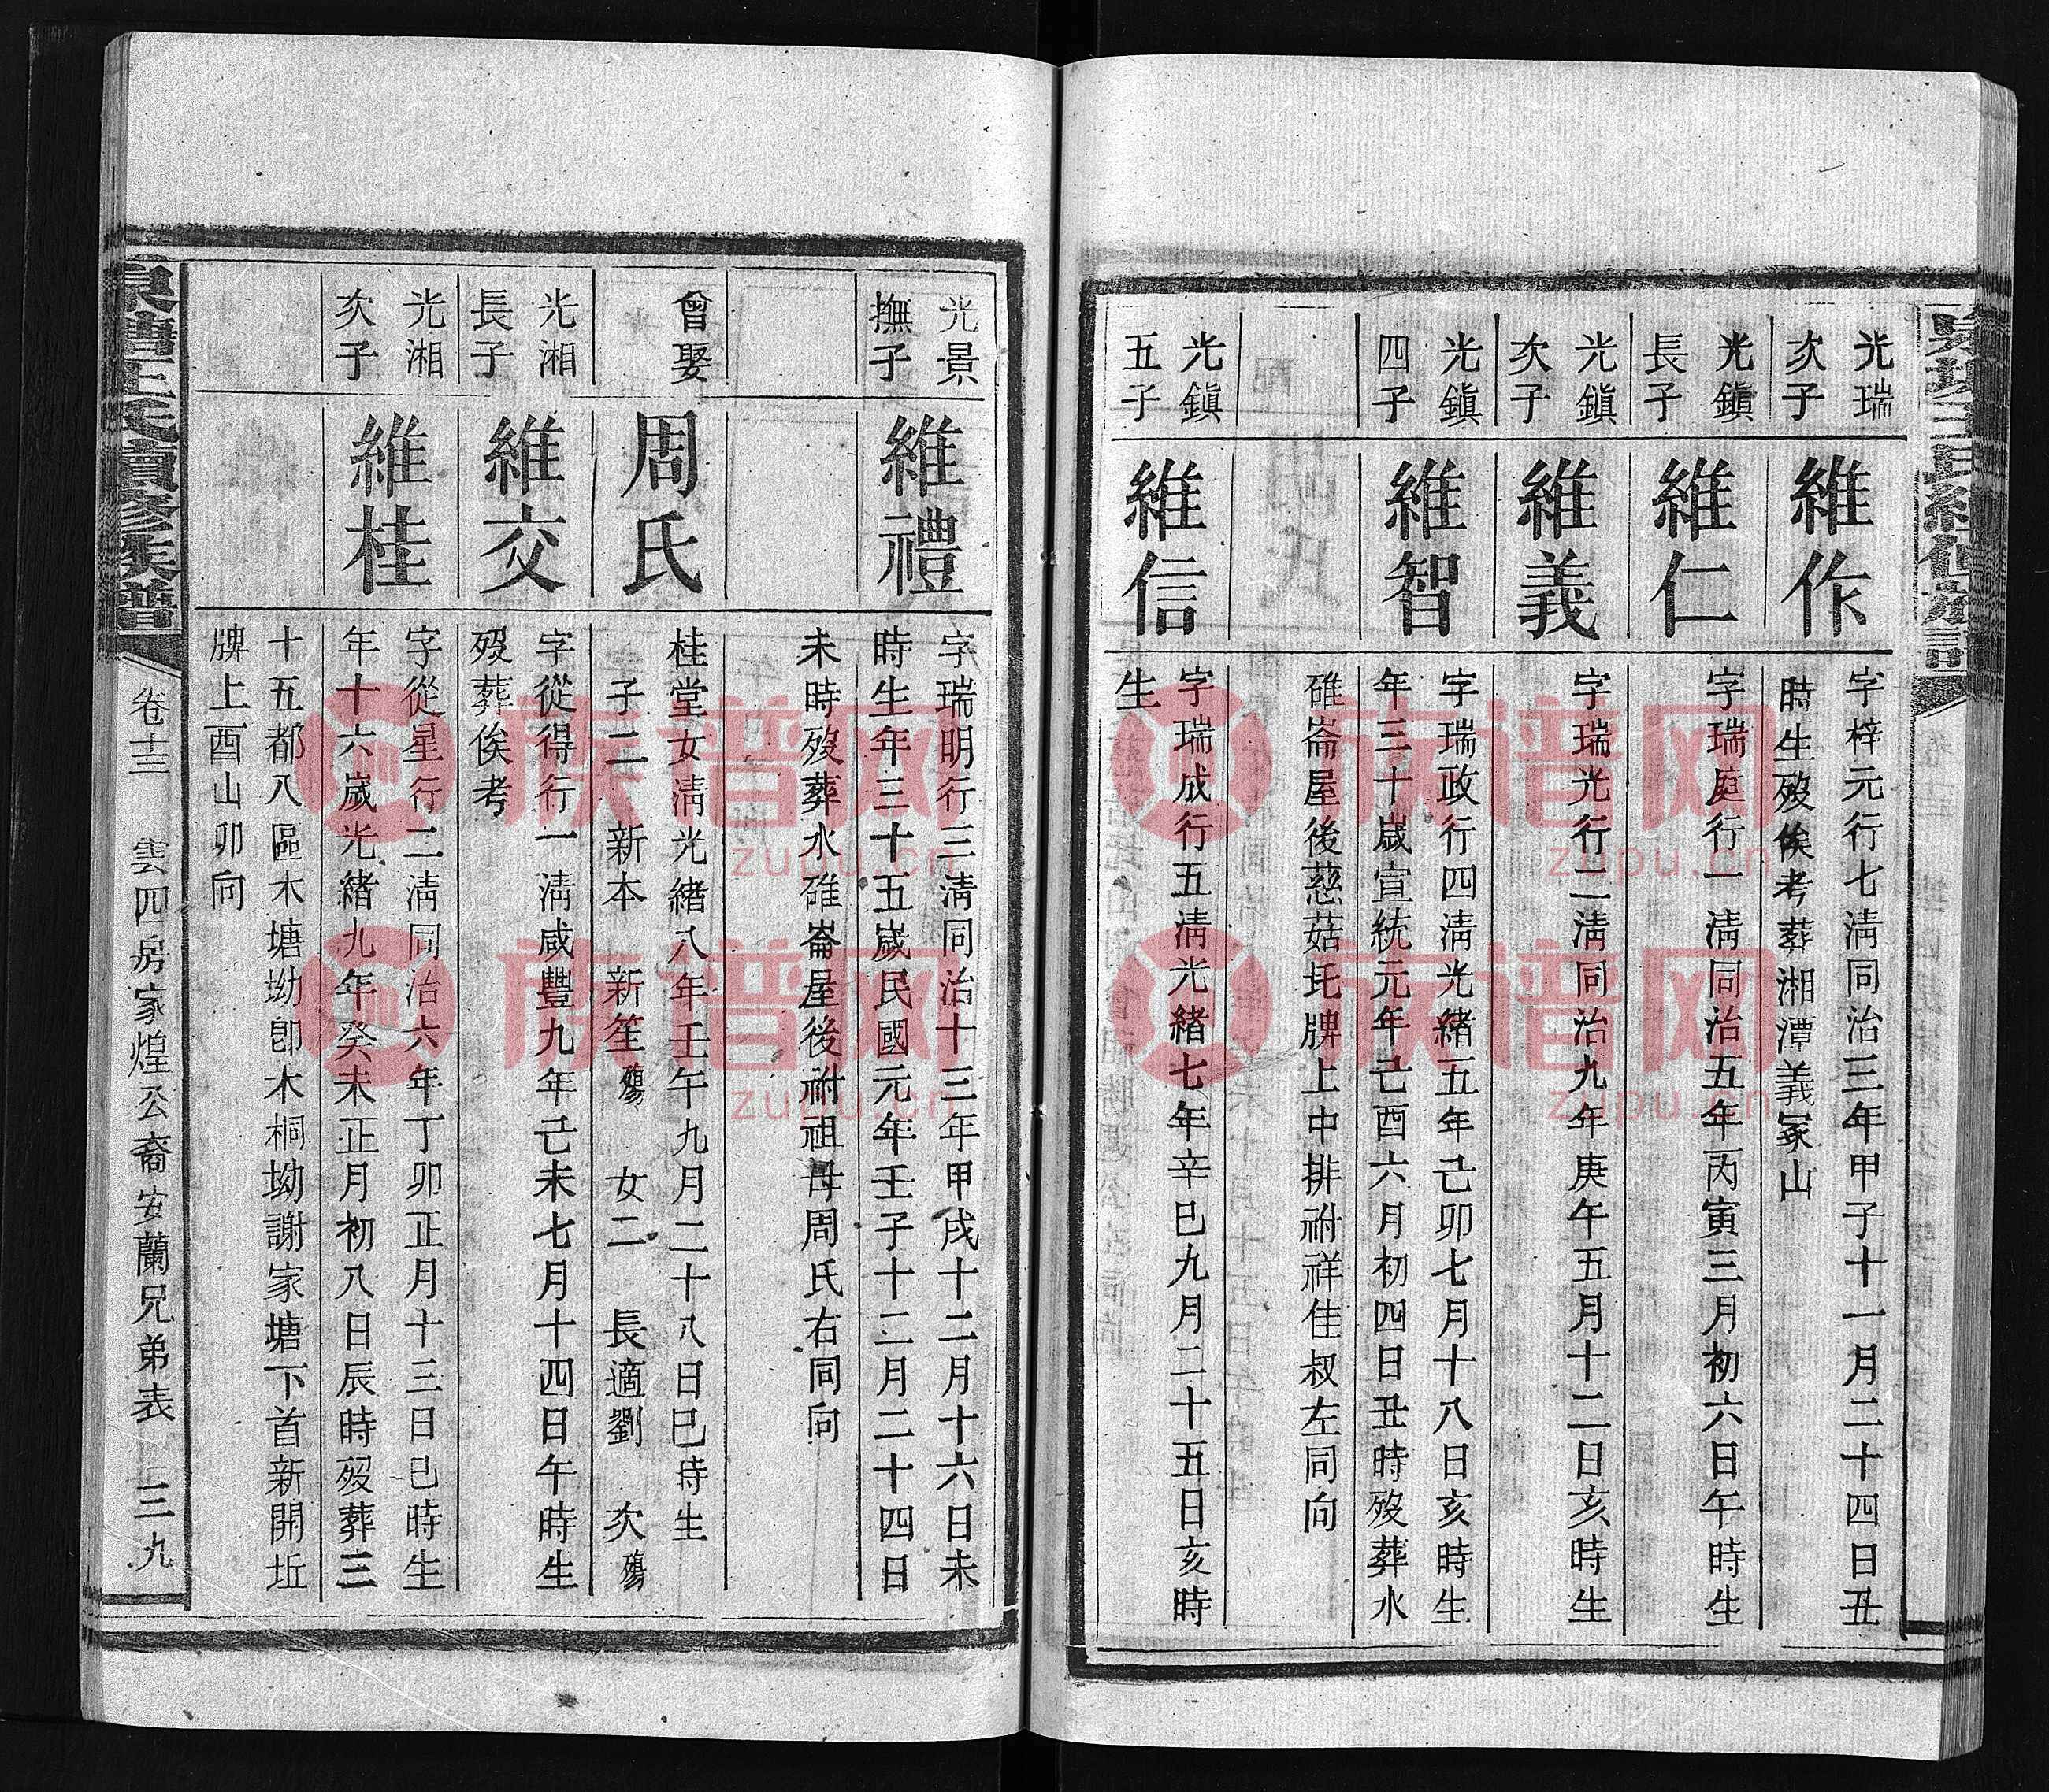 光瑞
次子
維作
字梓元行七淸同治三年甲子十一月二十四日丑
時生歿俟考葬湘潭義冢山
光鎭
長子
維仁
字瑞庭行一淸同治五年丙寅三月初六日午時生
光鎭
次子
維義
字瑞光行二淸同治九年庚午五月十二日亥時生
光鎭
四子
維智
字瑞政行四淸光緒五年己卯七月十八日亥時生
年三十嵗宣統元年己酉六月初四日丑時歿葬水
碓崙屋後慈菇坉牌上中排祔祥佳叔左同向
光鎭
五子
維信
字瑞成行五淸光緒七年辛巳九月二十五日亥時
生
光景
撫子
維禮
字瑞明行三淸同治十三年甲戌十二月十六日未
時生年三十五嵗民國元年壬子十二月二十四日
未時歿葬水碓崙屋後祔祖母周氏右同向
曾娶
周氏
桂堂女淸光緒八年壬午九月二十八日巳時生
子二 新本 新笙殤 女二 長適劉 次殤
光湘
長子
維交
字從得行一淸咸豐九年己未七月十四日午時生
歿葬俟考
光湘
次子
維桂
字從星行二淸同治六年丁卯正月十三日巳時生
年十六嵗光緒九年癸未正月初八日辰時歿葬三
十五都八區木塘坳卽木桐坳謝家塘下首新開坵
牌上酉山卯向
王氏續修族譜
卷十三 雲四房家煌公裔安蘭兄弟表 三九
族谱网
zupu.cn
族谱网
zupu.cn
族谱网
zupu.cn
族谱网
zupu.cn